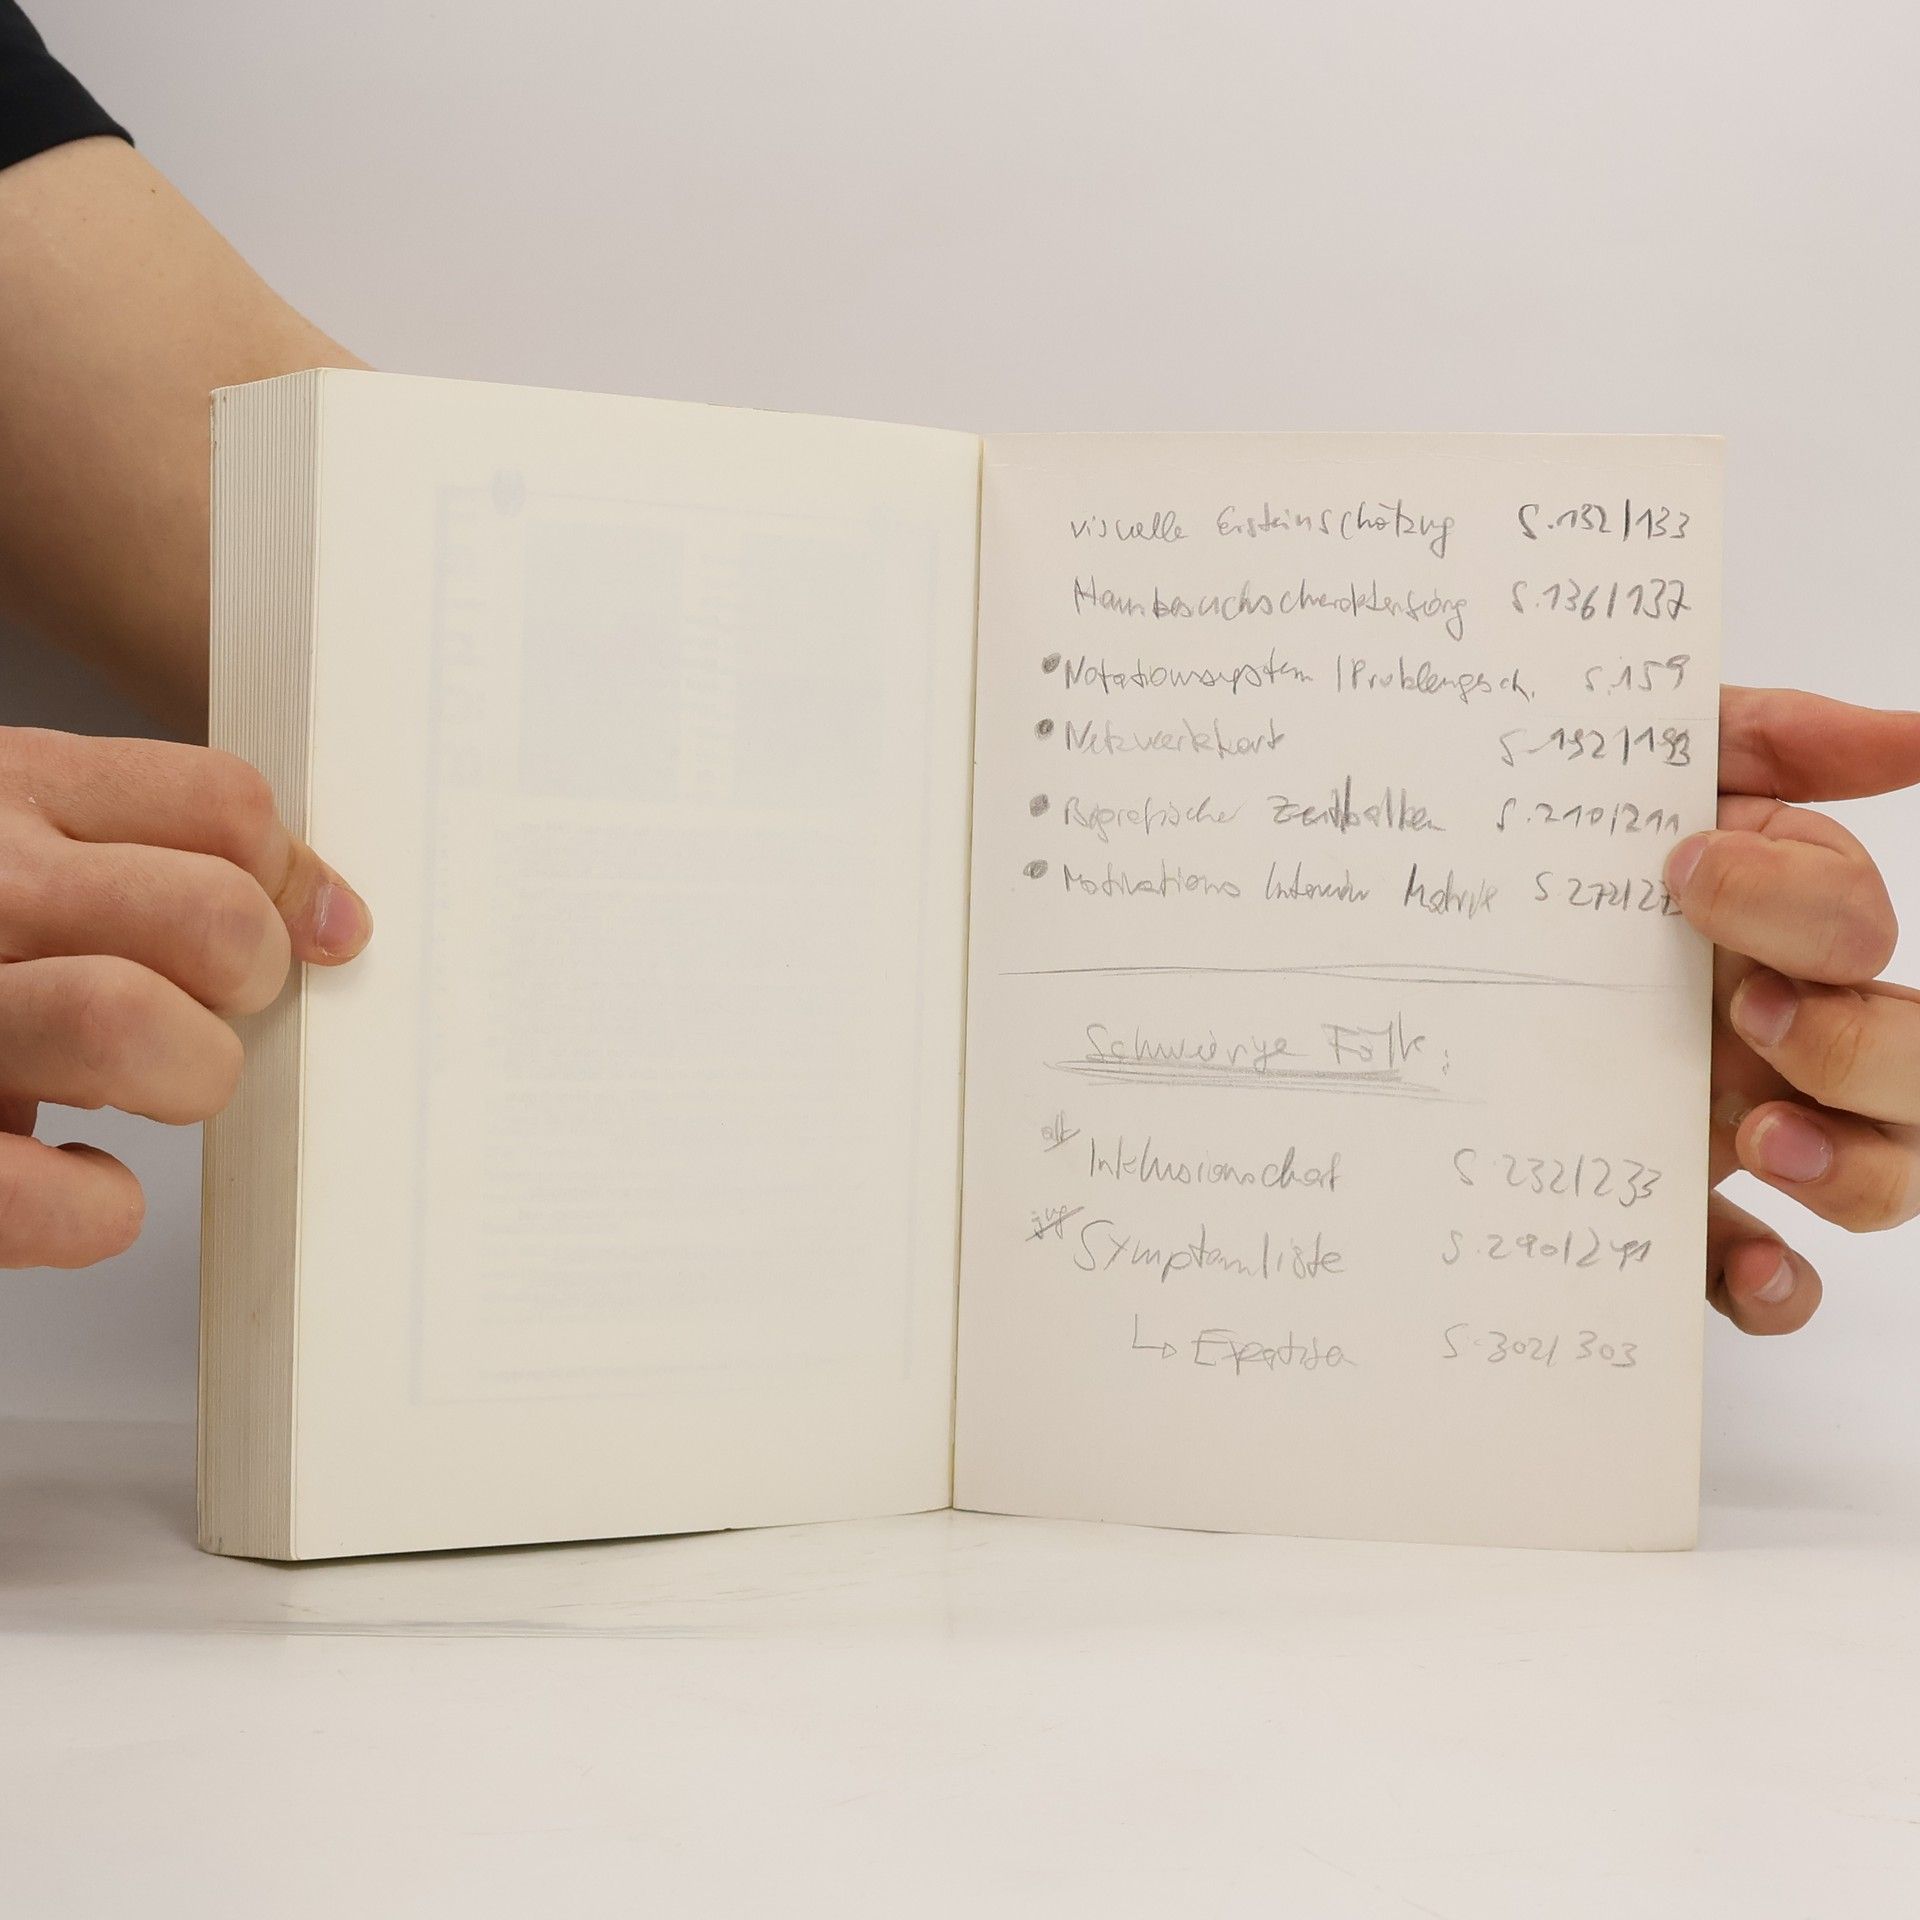 visuelle Ersteinschätzung S.132/133
S.136/137
• Notationssystem / Problemgesch. S.159
• Netzwerkkart S.192/193
• Biografischer Zeitbalken S.210/211
• Motivations Interview Matrix S 272/27
Schwierige Fälle:
alt
Inklusionschart S 232/233
jug
Symptomliste S.290/291
↳ S.302/303